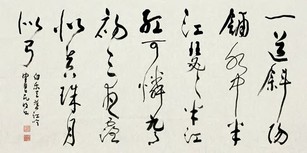 一道斜陽
鋪水中半
江瑟瑟半江
紅可憐九月
初三夜露
似真珠月
似弓
白樂天暮江吟